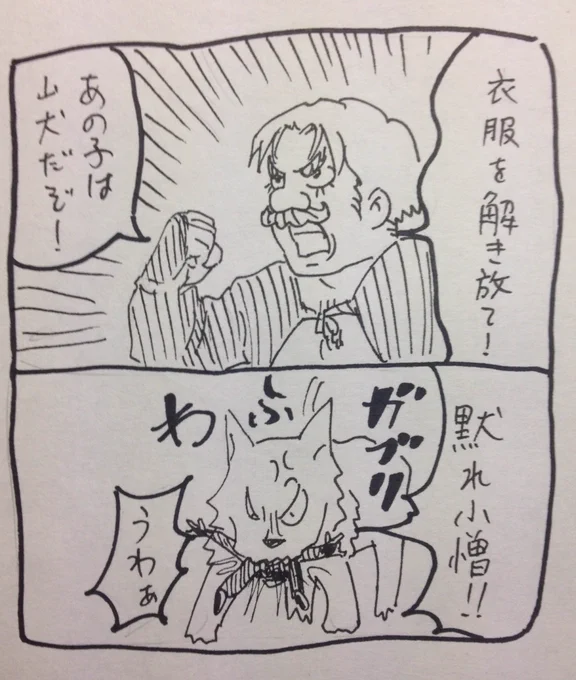 衣服を解き放て!
あの子は
山犬だぞ!
黙れ小僧!!
ガブリ
ふ
わ
うわぁ